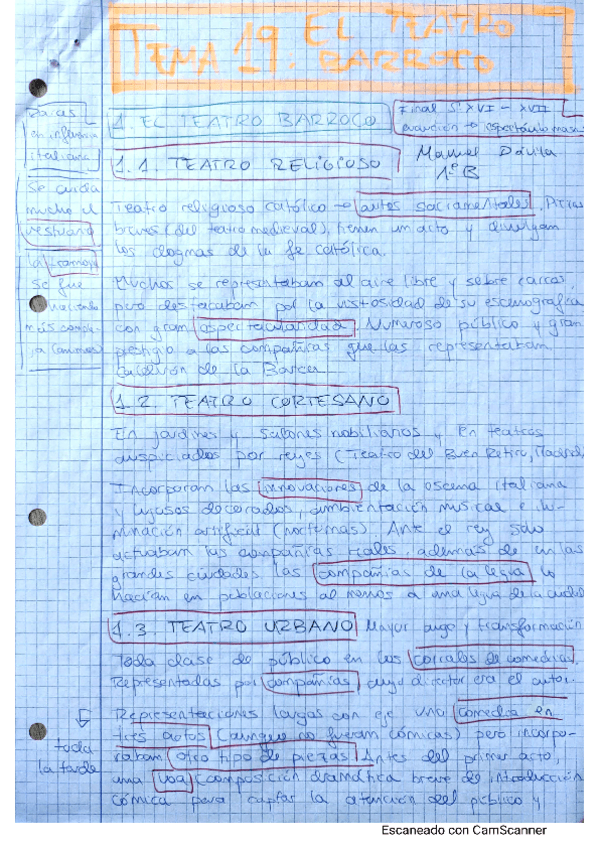 TEMA 19: EL TEATRO BARROCO
1. EL TEATRO BARROCO
Final S. XVI - XVII
evolución → espectáculo masas
Manuel Dávila
1º B
1.1. TEATRO RELIGIOSO
Raíces
en influencia
italiana
Se cuida
mucho el
vestuario
la tramoya
se fue
haciendo
más comple-
ja
Teatro religioso católico → autos sacramentales. Piezas
breves (del teatro medieval), tienen un acto y divulgan
los dogmas de la fe católica.
Muchos se representaban al aire libre y sobre carros,
pero destacaban por la vistosidad de su escenografía
con gran espectacularidad. Numeroso público y gran
prestigio a las compañías que las representaban
Calderón de la Barca.
1.2. TEATRO CORTESANO
En jardines y salones nobiliarios y en teatros
auspiciados por reyes (Teatro del Buen Retiro, Madrid)
Incorporan las innovaciones de la escena italiana
y lujosos decorados, ambientación musical e ilu-
minación artificial (nocturnas). Ante el rey solo
actuaban las compañías reales, además de en las
grandes ciudades las compañías de la legua lo
hacían en poblaciones al menos a una legua de la ciudad
1.3. TEATRO URBANO Mayor auge y transformación
Toda clase de público en los corrales de comedias.
Representadas por compañías cuyo director era el autor.
Representaciones largas con eje una comedia en
tres actos (aunque no fueran cómicas) pero incorpo-
raban otro tipo de piezas. Antes del primer acto,
una loa (composición dramática breve de introducción
cómica para captar la atención del público y
toda
la tarde
Escaneado con CamScanner